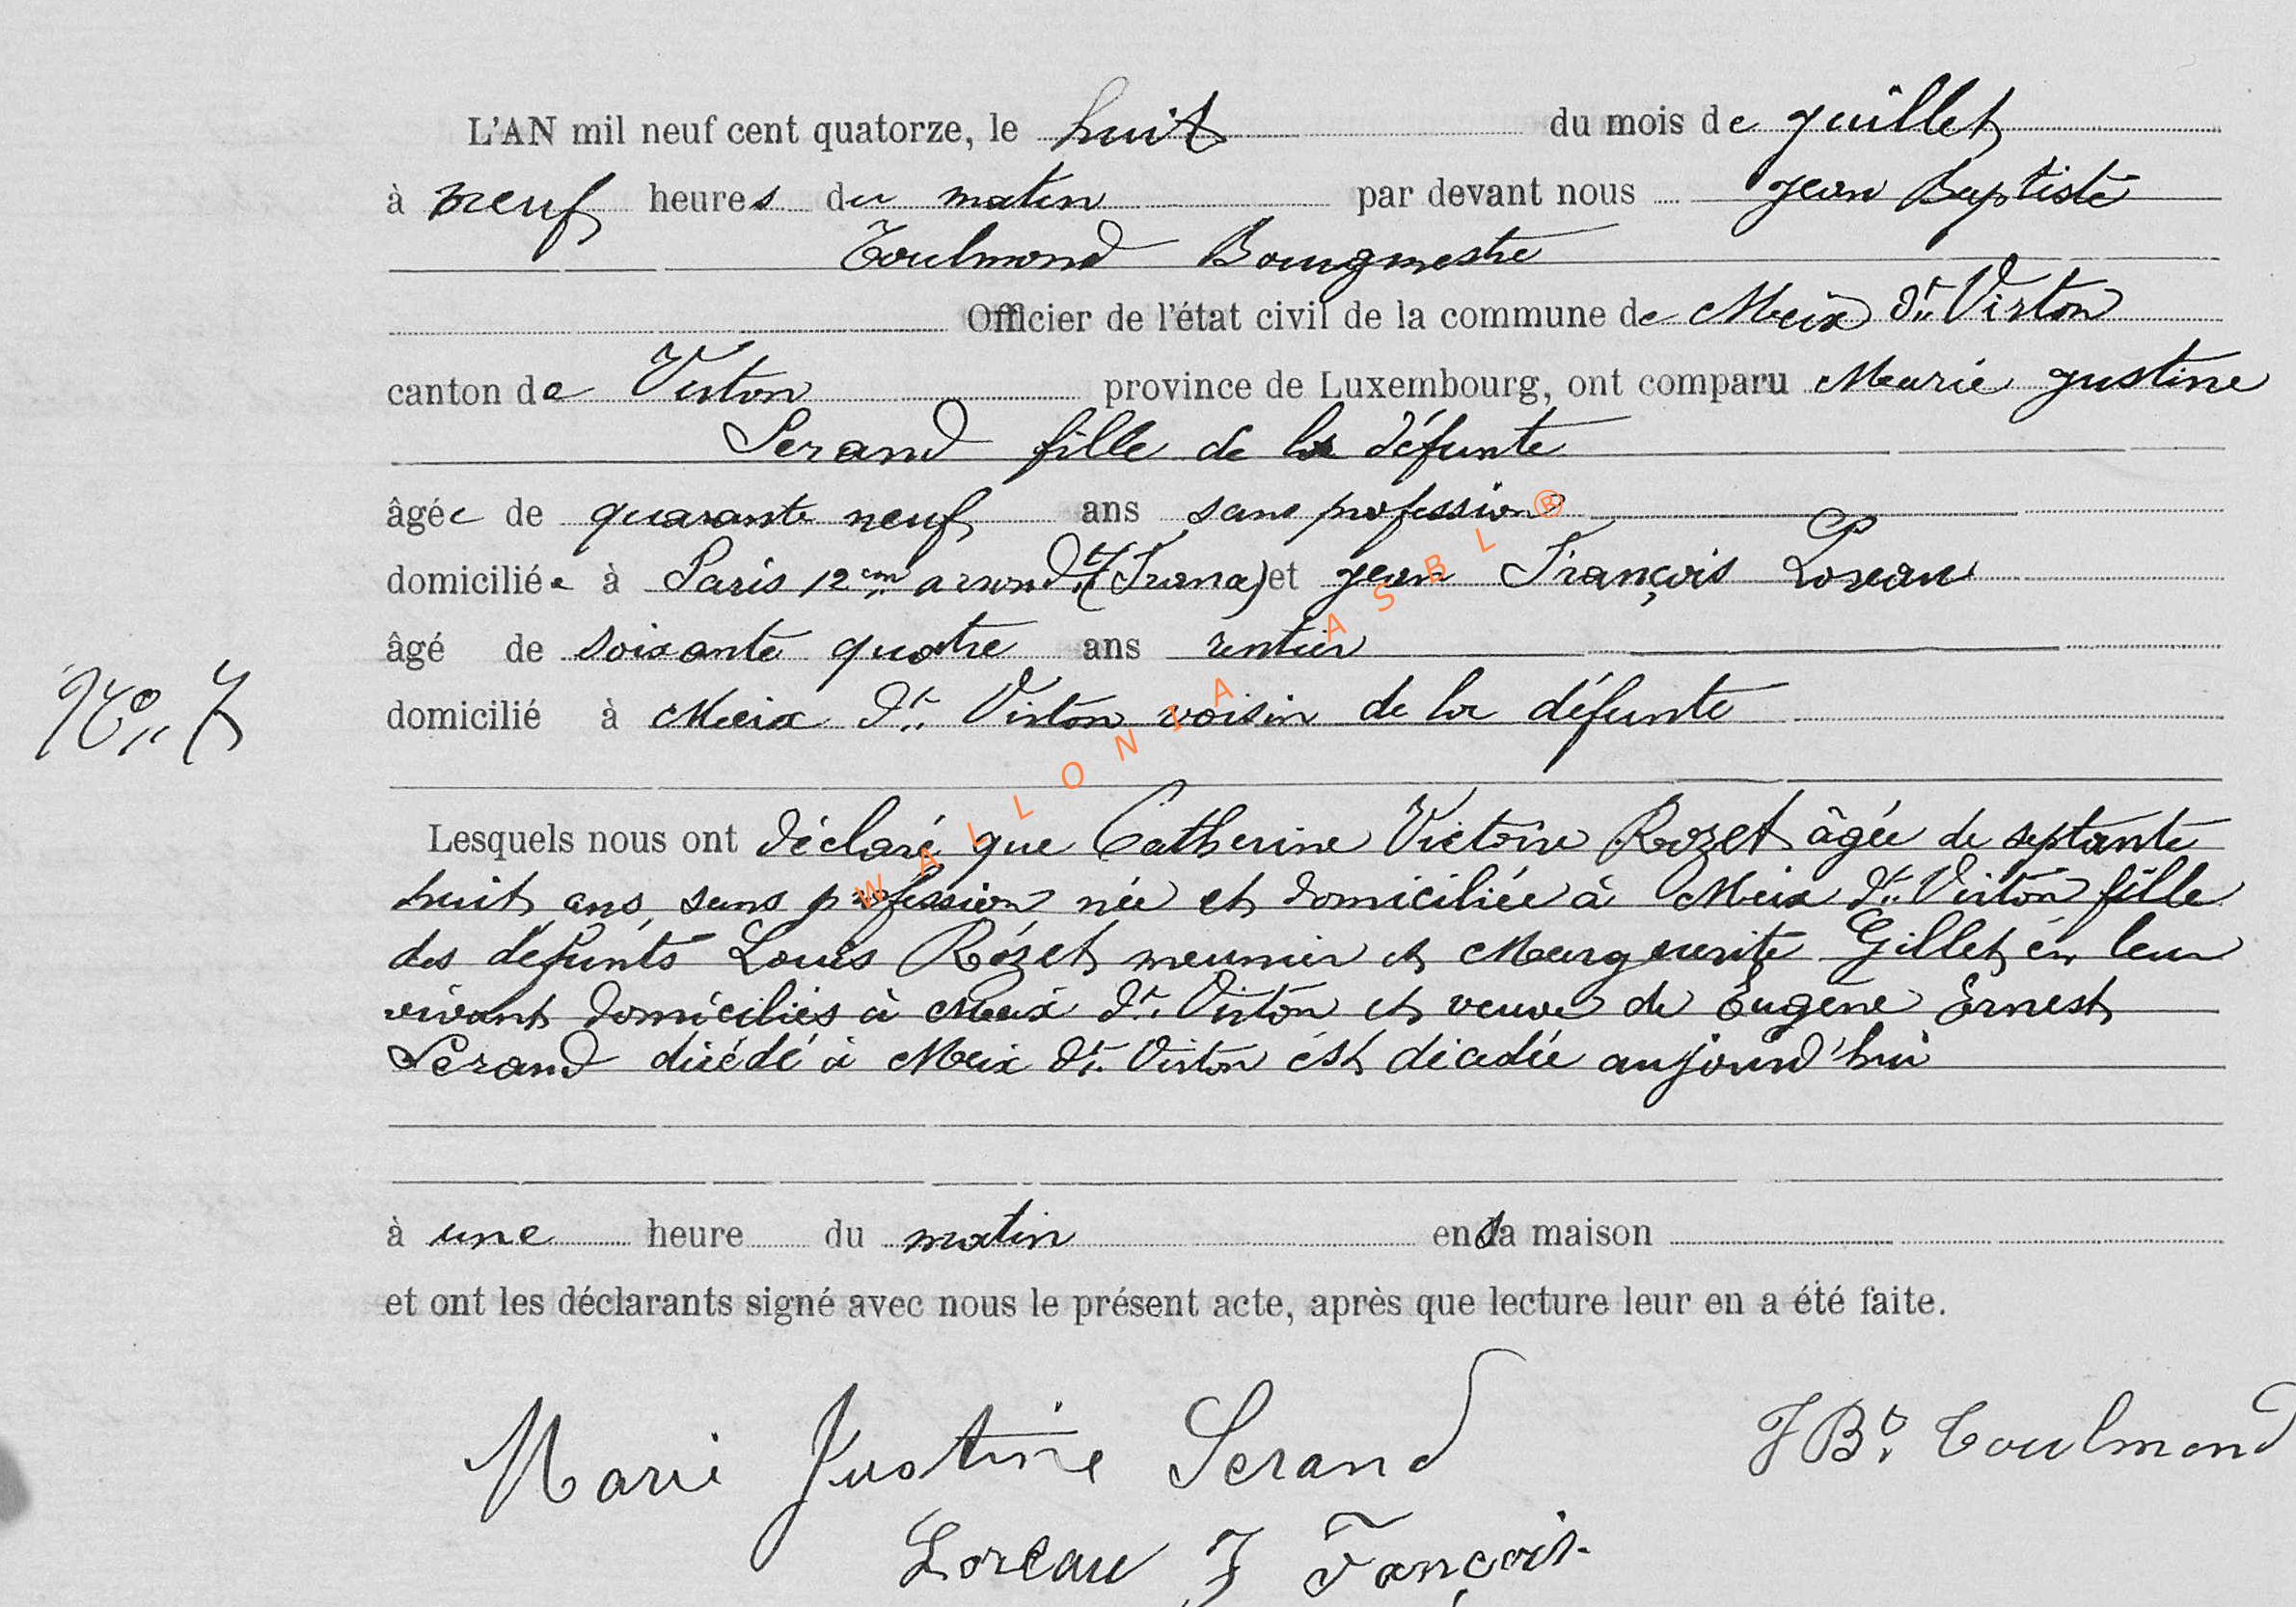 L'AN mil neuf cent quatorze, le huit du mois de juillet
à neuf heures du matin par devant nous Jean Baptiste
Toulmond Bourgmestre
Officier de l'état civil de la commune de Meix dt Virton
canton de Virton province de Luxembourg, ont comparu Marie Justine
Serand fille de la défunte
âgée de quarante neuf ans sans profession
domiciliée à Paris 12em arrondt (France) et Jean François Loreau
âgé de soixante quatre ans rentier
No 7
domicilié à Meix dt Virton voisin de la défunte
Lesquels nous ont déclaré que Catherine Victoire Rozet âgée de septante
huit ans, sans profession née et domiciliée à Meix dt Virton fille
des défunts Louis Rozet meunier et Marguerite Gillet en leur
vivant domiciliés à Meix dt Virton et veuve de Eugène Ernest
Serand décédé à Meix dt Virton est décédée aujourd'hui
à une heure du matin en sa maison
et ont les déclarants signé avec nous le présent acte, après que lecture leur en a été faite.
Marie Justine Serand JBte Toulmond
Loreau J François
WALLONIA ASBL ®